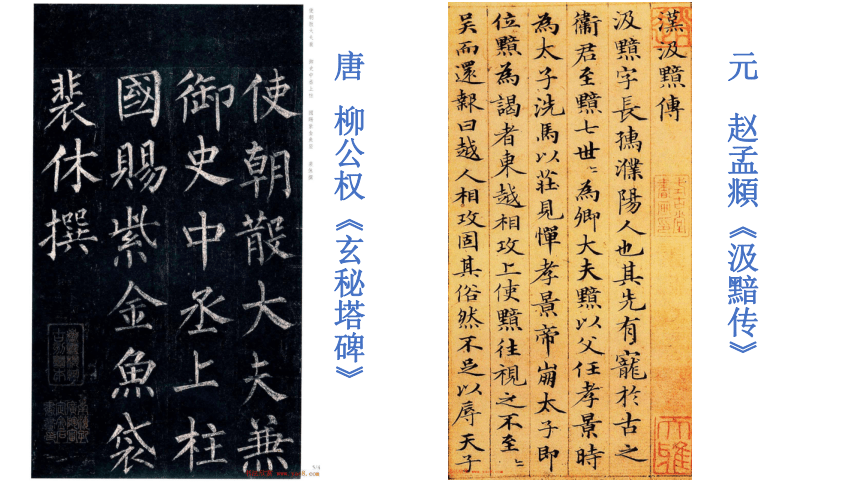 使朝散大夫兼
御史中丞上柱
國賜紫金魚袋
裴休撰
唐 柳公权《玄秘塔碑》
漢汲黯傳
汲黯字長孺濮陽人也其先有寵於古之
衛君至黯七世〻為卿大夫黯以父任孝景時
為太子洗馬以莊見憚孝景帝崩太子即
位黯為謁者東越相攻上使黯往視之不至〻
吴而還報曰越人相攻固其俗然不足以辱天子
元 赵孟頫《汲黯传》